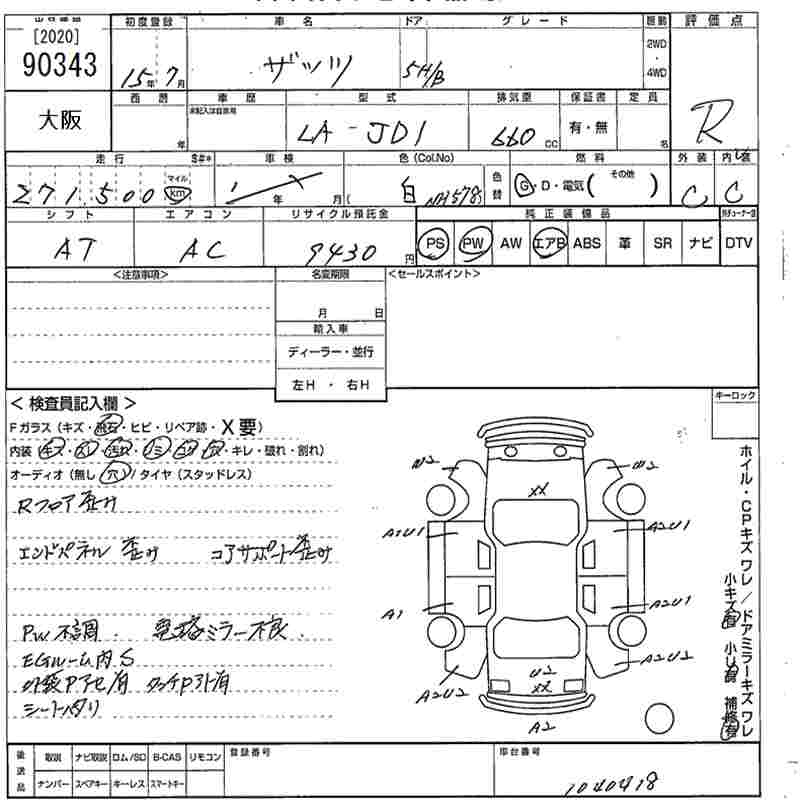 [2020]
90343
大阪
初度登録 車名 ドア グレード 駆動 評価点
15年7月 ザッツ 5H/B 2WD・4WD R
西暦 車歴 型式 排気量 保証書 定員
未記入は自家用
年 LA-JD1 660cc 有・無 名
走行 S#* 車検 色(Col.No) 燃料 外装 内装
271,500 マイル km 年 月( 白 NH578) 色替 G・D・電気( その他 ) C C
シフト エアコン リサイクル預託金 純正装備品
AT AC 9430円 PS PW AW エアB ABS 革 SR ナビ DTV
<注意事項> 名変期限 <セールスポイント>
月 日
輸入車
ディーラー・並行
左H・右H
キーロック
<検査員記入欄>
Fガラス(キズ・飛石・ヒビ・リペア跡・X要)
内装(キズ・スレ・汚れ・シミ・コゲ・穴・キレ・破れ・割れ)
オーディオ(無し・穴)/タイヤ(スタッドレス)
Rフロア歪み
エンドパネル 歪み コアサポート歪み
PW不調. 電格ミラー不良
EGルーム内S
外装Pアセ有 タッチP外有
シートヘタリ
U2 U2
XX
A2U1 A2U1
A1 A2U1
A2U2 U2 A2U2
XX
A2
ホイル・CPキズワレ/ドアミラーキズワレ
小キズ有 小U有 補修有
後送品 取説 ナビ取説 ロム/SD B-CAS リモコン 登録番号 車台番号
ナンバー スペアキー キーレス スマートキー 1040418